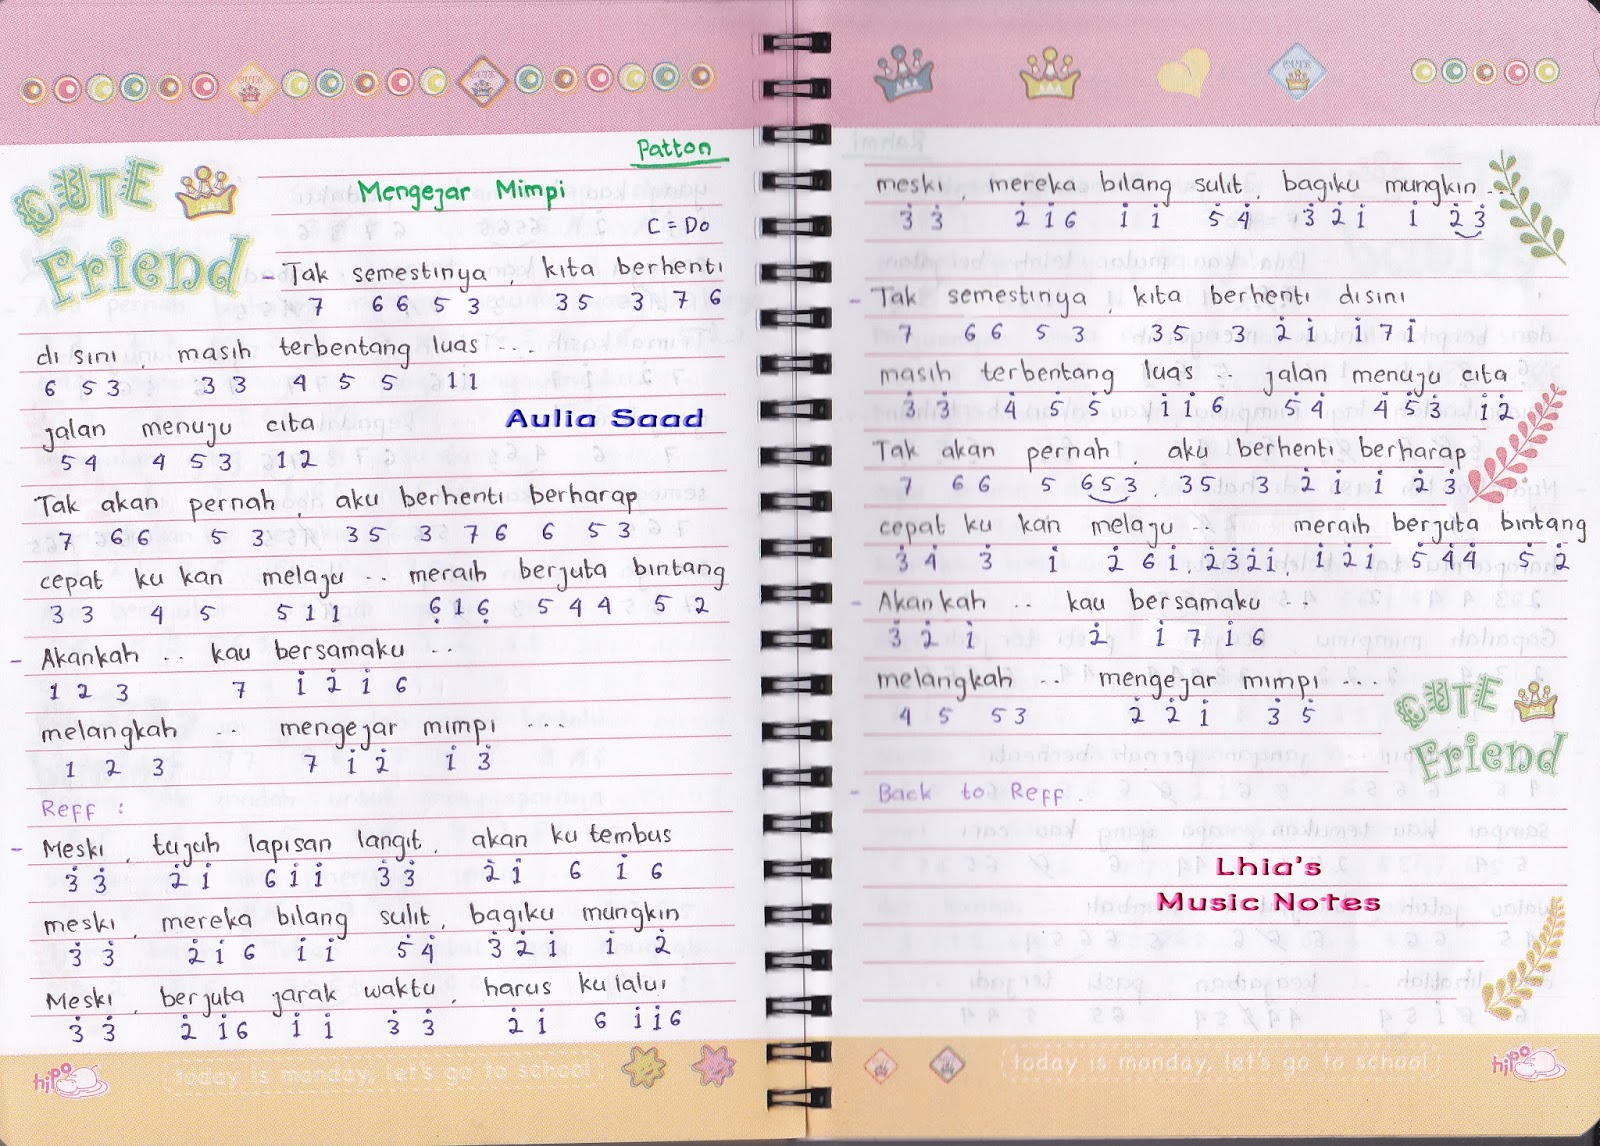 CUTE Friend
Patton
Mengejar Mimpi
C = Do
- Tak semestinya, kita berhenti
7 6 6 5 3 3 5 3 7 6
disini, masih terbentang luas ...
6 5 3 3 3 4 5 5 1 1
jalan menuju cita
Aulia Saad
5 4 4 5 3 1 2
Tak akan pernah, aku berhenti berharap
7 6 6 5 3 3 5 3 7 6 6 5 3
cepat ku kan melaju .. meraih berjuta bintang
3 3 4 5 5 1 1 6̣ 1 6̣ 5 4 4 5 2
- Akankah .. kau bersamaku ..
1 2 3 7 1̇ 2̇ 1̇ 6
melangkah .. mengejar mimpi ...
1 2 3 7 1̇ 2̇ 1̇ 3̇
Reff :
- Meski, tujuh lapisan langit, akan ku tembus
3̇ 3̇ 2̇ 1̇ 6 1̇ 1̇ 3̇ 3̇ 2̇ 1̇ 6 1̇ 6
meski, mereka bilang sulit, bagiku mungkin
3̇ 3̇ 2̇ 1̇ 6 1̇ 1̇ 5̇ 4̇ 3̇ 2̇ 1̇ 1̇ 2̇
Meski, berjuta jarak waktu, harus kulalui
3̇ 3̇ 2̇ 1̇ 6 1̇ 1̇ 3̇ 3̇ 2̇ 1̇ 6 1̇ 1̇ 6
hipo
today is monday, let's go to school
meski, mereka bilang sulit, bagiku mungkin ..
3̇ 3̇ 2̇ 1̇ 6 1̇ 1̇ 5̇ 4̇ 3̇ 2̇ 1̇ 1̇ 2̇ 3̇
- Tak semestinya, kita berhenti disini
7 6 6 5 3 3 5 3 2̇ 1̇ 1̇ 7 1̇
masih terbentang luas .. jalan menuju cita
3̇ 3̇ 4̇ 5̇ 5̇ 1̇ 1̇ 6 5̇ 4̇ 4̇ 5̇ 3̇ 1̇ 2̇
Tak akan pernah, aku berhenti berharap
7 6 6 5 6 5 3, 3 5 3 2̇ 1̇ 1̇ 2̇ 3̇
cepat ku kan melaju .. meraih berjuta bintang
3̇ 4̇ 3̇ 1̇ 2̇ 6 1̇, 2̇ 3̇ 2̇ 1̇, 1̇ 2̇ 1̇ 5̇ 4̇ 4̇ 5̇ 2̇
- Akankah .. kau bersamaku ..
3̇ 2̇ 1̇ 2̇ 1̇ 7 1̇ 6
melangkah .. mengejar mimpi ...
4 5 5 3 2̇ 2̇ 1̇ 3̇ 5̇
CUTE Friend
- Back to Reff.
Lhia's
Music Notes
today is monday, let's go to school
hipo